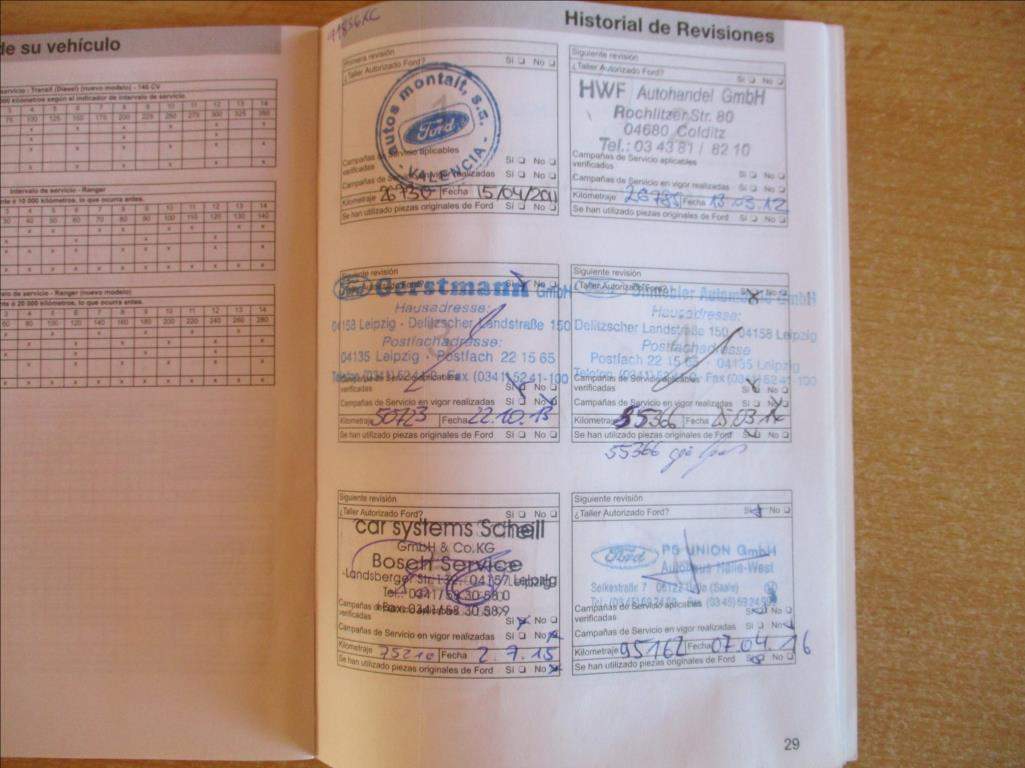 de su vehículo
servicio - Transit (Diesel) (nuevo modelo) - 140 CV
000 kilómetros según el indicador de intervalo de servicio.
3 4 5 6 7 8 9 10 11 12 13 14
75 100 125 150 175 200 225 250 275 300 325 350
Intervalo de servicio - Ranger
te ó 10 000 kilómetros, lo que ocurra antes.
3 4 5 6 7 8 9 10 11 12 13 14
de servicio - Ranger (nuevo modelo)
te ó 20 000 kilómetros, lo que ocurra antes.
3 4 5 6 7 8 9 10 11 12 13 14
60 80 100 120 140 160 180 200 220 240 260 280
Historial de Revisiones
Primera revisión
¿Taller Autorizado Ford? Sí No
autos montalt, s.a.
Ford
- VALENCIA -
Campañas de Servicio aplicables
verificadas Sí No
Campañas de Servicio en vigor realizadas Sí No
Kilometraje 26730 Fecha 15/04/201
Se han utilizado piezas originales de Ford Sí No
Siguiente revisión
¿Taller Autorizado Ford? Sí No
HWF Autohandel GmbH
Rochlitzer Str. 80
04680 Colditz
Tel.: 03 43 81 / 82 10
Campañas de Servicio aplicables
verificadas Sí No
Campañas de Servicio en vigor realizadas Sí No
Kilometraje 26785 Fecha 13.03.12
Se han utilizado piezas originales de Ford Sí No
Siguiente revisión
¿Taller Autorizado Ford? Sí No
Ford Gerstmann GmbH
Hausadresse:
04158 Leipzig - Delitzscher Landstraße 150
Postfachadresse:
04135 Leipzig - Postfach 22 15 65
Fax (0341) 52 41-100
Campañas de Servicio aplicables
verificadas Sí No
Campañas de Servicio en vigor realizadas Sí No
Kilometraje 50723 Fecha 22.10.13
Se han utilizado piezas originales de Ford Sí No
Siguiente revisión
¿Taller Autorizado Ford? Sí No
GmbH
Hausadresse:
Delitzscher Landstraße 150 04158 Leipzig
Postfachadresse
Postfach 22 15 65 04135 Leipzig
Fax (0341) 52 41 100
Campañas de Servicio aplicables
verificadas Sí No
Campañas de Servicio en vigor realizadas Sí No
Kilometraje 55366 Fecha
Se han utilizado piezas originales de Ford Sí No
55366
Siguiente revisión
¿Taller Autorizado Ford? Sí No
car systems Scheil
GmbH & Co.KG
Bosch Service
Landsberger Str. 04157 Leipzig
Tel.: 0341/ 58 30 58 0
Fax: 0341/ 58 30 58 9
Campañas de Servicio aplicables
verificadas Sí No
Campañas de Servicio en vigor realizadas Sí No
Kilometraje 75210 Fecha 2.7.15
Se han utilizado piezas originales de Ford Sí No
Siguiente revisión
¿Taller Autorizado Ford? Sí No
Ford PS UNION GmbH
Autohaus Halle-West
Selkestraße 7 06122 Halle (Saale)
Campañas de Servicio aplicables
verificadas Sí No
Campañas de Servicio en vigor realizadas Sí No
Kilometraje 95162 Fecha 07.04.16
Se han utilizado piezas originales de Ford Sí No
29